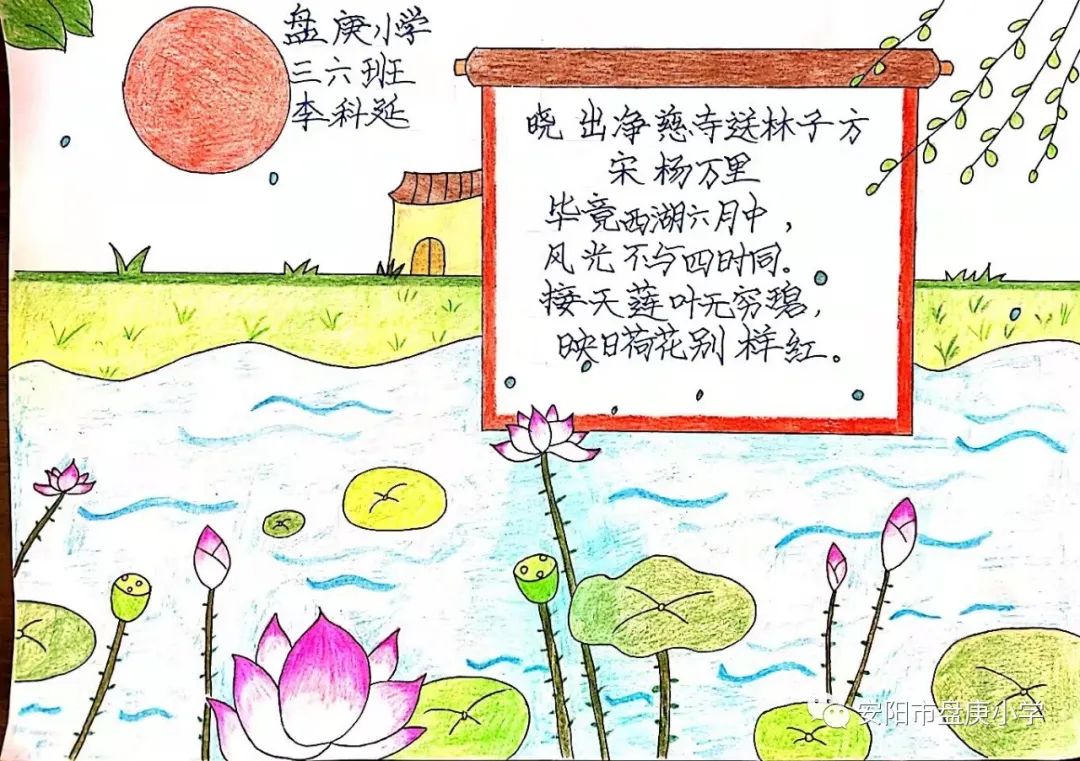 盘庚小学
三六班
李科延
晓出净慈寺送林子方
宋 杨万里
毕竟西湖六月中，
风光不与四时同。
接天莲叶无穷碧，
映日荷花别样红。
安阳市盘庚小学